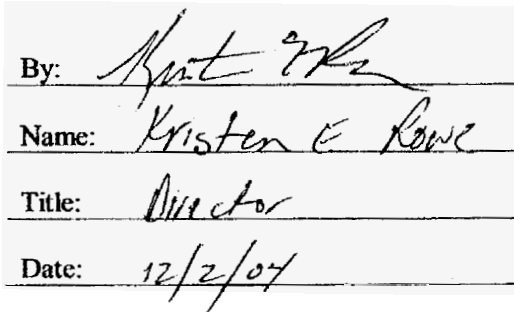 By:
Name: Kristen E Rowe
Title: Director
Date: 12/2/04